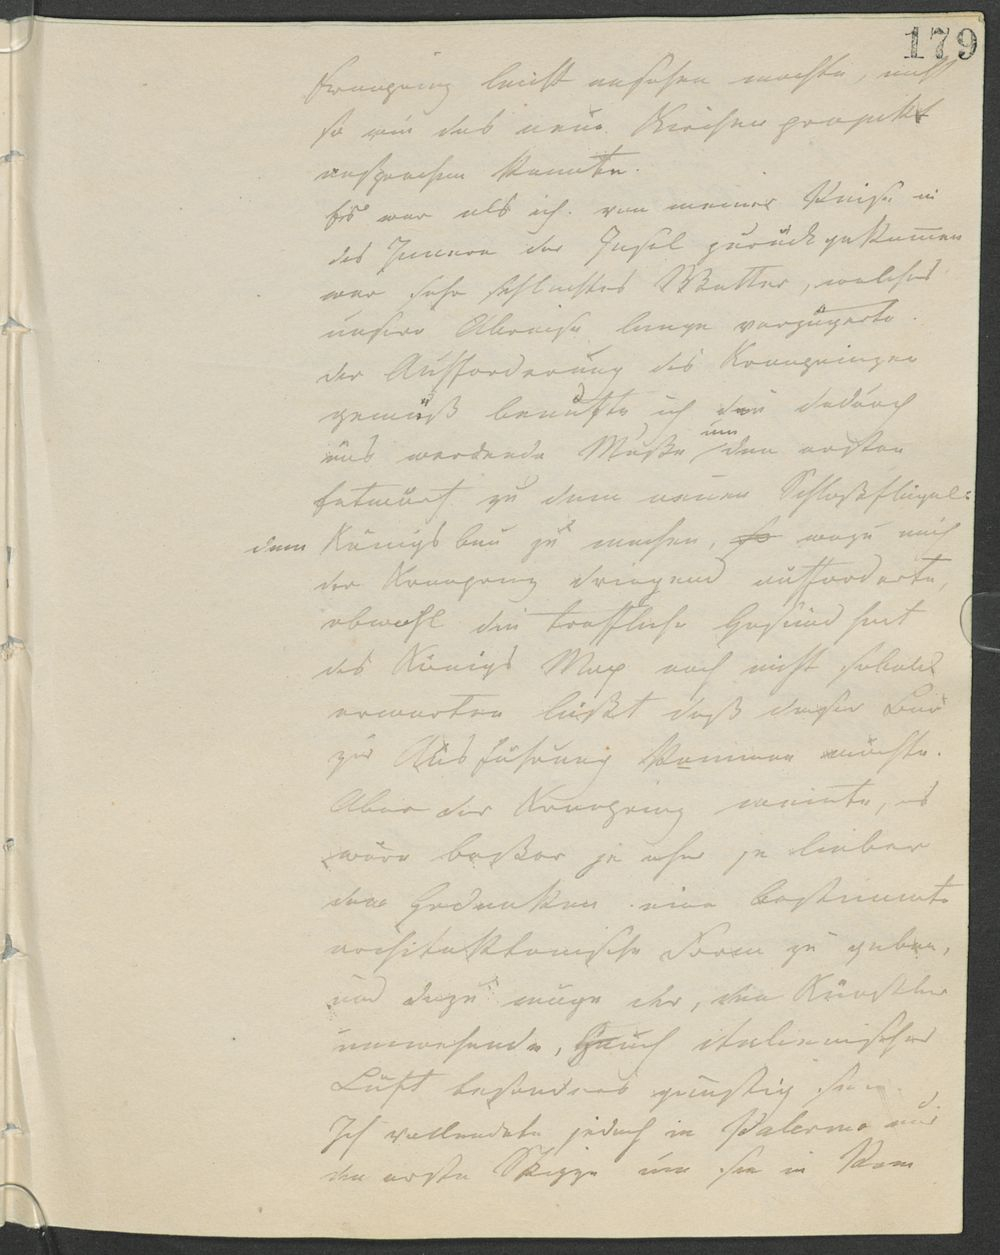 179
Kronprinz leicht ansehen mochte, nicht
so wie das neue Kirchen projekt
aussprechen konnte.
Es war als ich von meiner Reise in
das Innere der Insel zurückgekommen
war sehr schlechtes Wetter, welches
unsere Abreise lange verzögerte.
der Aufforderung des Kronprinzen
gemäß benutzte ich die dadurch
uns werdende Muße um den ersten
Entwurf zu dem neuen Schloßflügel:
dem Königsbau zu machen, so wozu mich
der Kronprinz dringend aufforderte,
obwohl die treffliche Gesundheit
des Königs Max noch nicht sobald
erwarten läßt daß dieser Bau
zur Ausführung kommen möchte.
Aber der Kronprinz meinte, es
wäre besser je eher je lieber
dem Gedanken eine bestimmte
architektonische Form zu geben,
und dazu möge der, den Künstler
umwehende, Hauch italienischer
Luft besonders günstig sein.
Ich vollendete jedoch in Palermo nur
die erste Skizze um sie in Rom